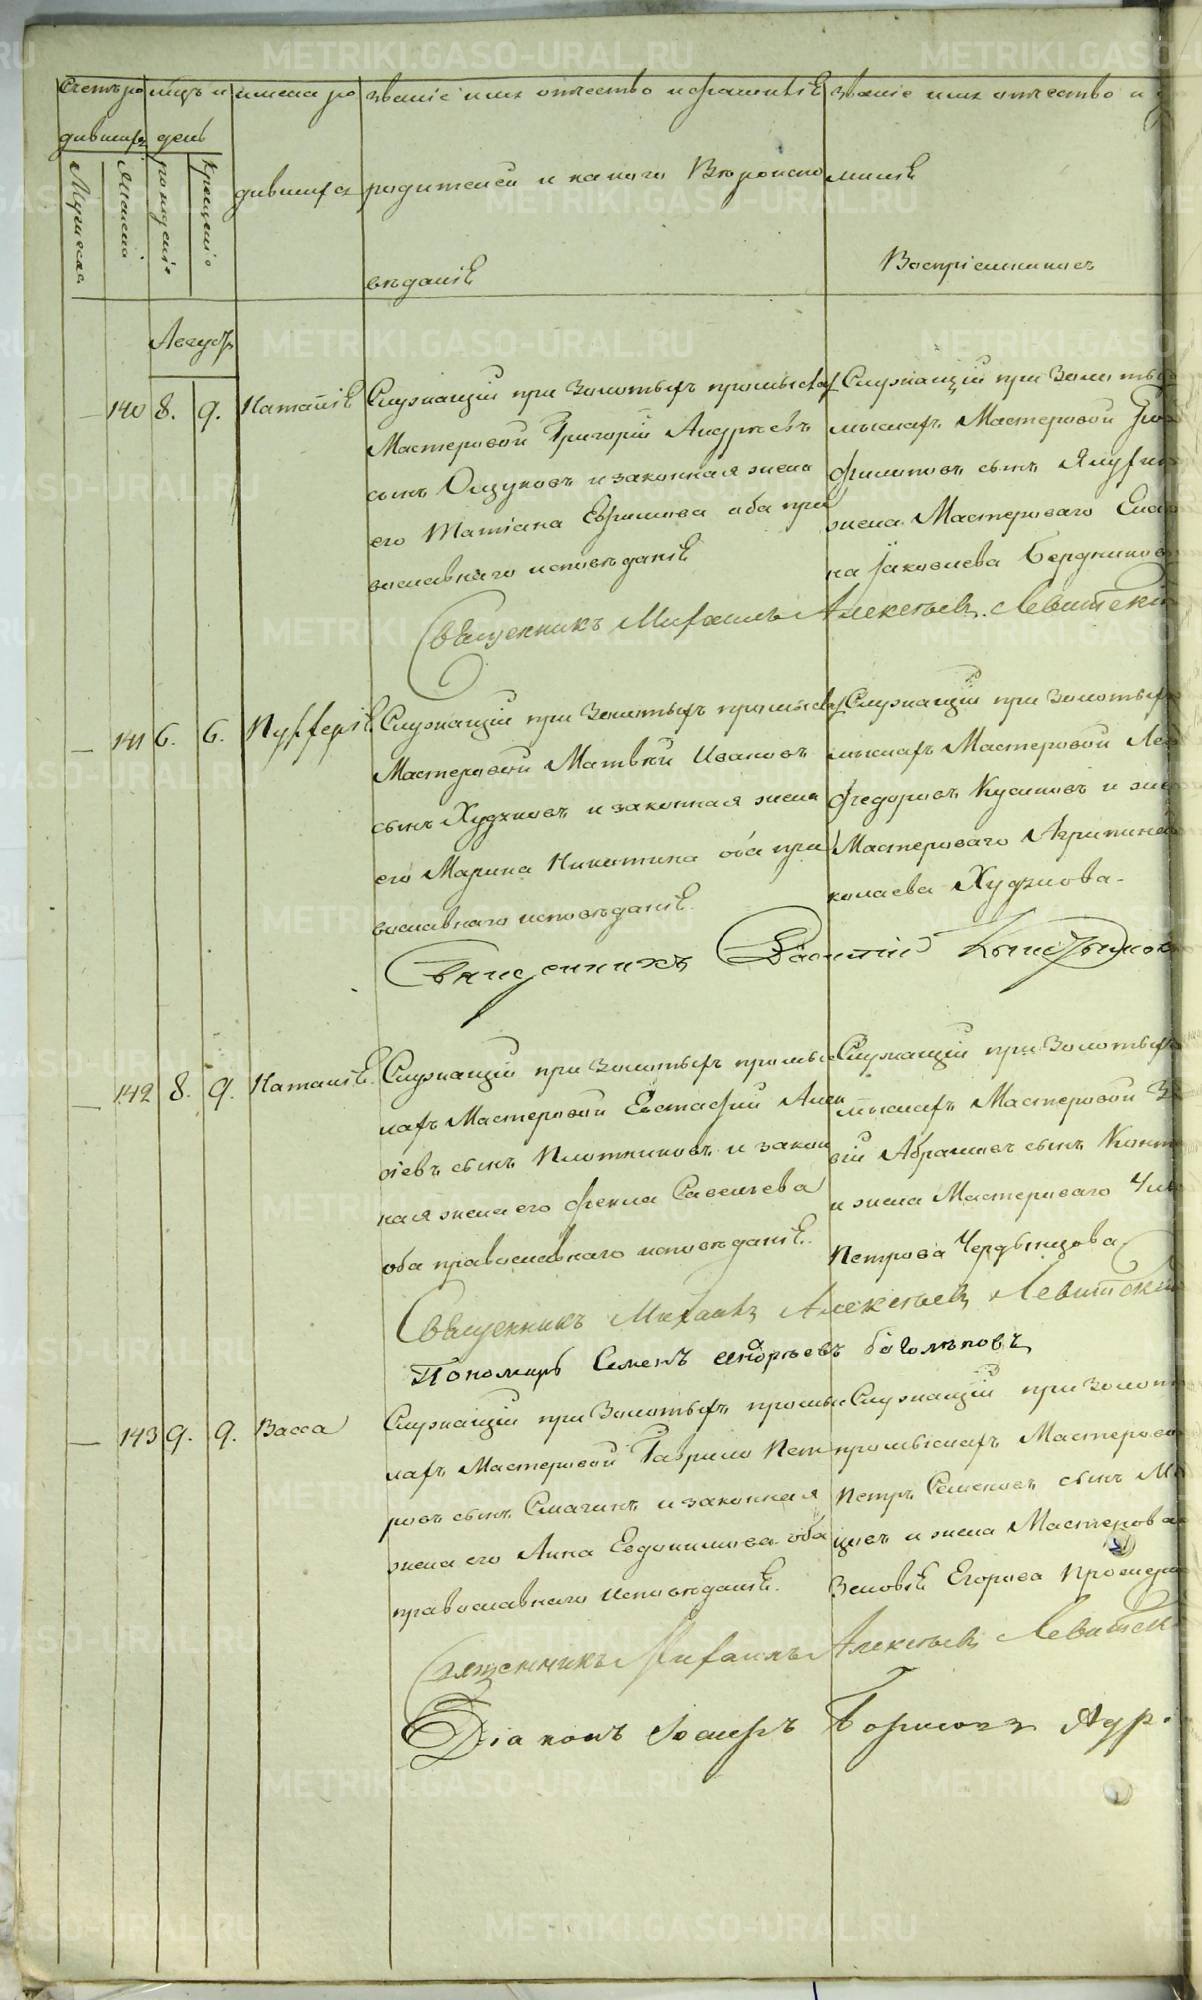 Счетъ ро
дившихся
Мужеска
Женска
мѣсяцъ и
день
рожденія
крещенія
имена ро
дившихся
званіе имя отчество и фамилія
родителей и какого Вѣроиспо
вѣданія
званіе имя отчество и
милія
Воспріемниковъ
Августъ
— 140 8. 9. Наталія
Служащій при Золотыхъ промыслах
Мастеровой Григорій Андреевъ
сынъ Ощуковъ и законная жена
его Татіана Ефимова оба пра
вославнаго исповѣданія
Служащій при Золотыхъ
мыслахъ Мастеровой
Филиповъ сынъ
жена Мастероваго
на Іаковлева Бердников
Священникъ Михаилъ Алексѣевъ Левитскій
— 141 6. 6. Пулхерія
Служащій при Золотыхъ промыслах
Мастеровой Матвѣй Ивановъ
сынъ Худяковъ и законная жена
его Марина Никитина оба пра
вославнаго исповѣданія.
Служащій при Золотыхъ
мыслахъ Мастеровой
Федоровъ Кусиновъ и жен
Мастероваго Агрипина
колаева Худякова.
Священникъ Василій
— 142 8. 9. Наталія
Служащій при Золотыхъ промыс
лахъ Мастеровой Евстафій Алек
сіевъ сынъ Плотниковъ и закон
ная жена его Фекла Савельева
оба православнаго исповѣданія.
Служащій при Золотыхъ
мыслахъ Мастеровой
вій Абрамовъ сынъ
и жена Мастероваго
Петрова Чердынцова.
Священникъ Михаилъ Алексѣевъ Левитскій
Пономарь Семенъ Андреевъ боголѣповъ
— 143 9. 9. Васса
Служащій при Золотыхъ промыс
лахъ Мастеровой Гаврило Пет
ровъ сынъ Смагинъ и законная
жена его Анна Евдокимова оба
православнаго исповѣданія.
Служащій при Золот
промыслахъ Мастерово
Петръ Семеновъ сынъ
цовъ и жена Мастерова
Зеновія Егорова
Священникъ Михаилъ Алексѣевъ Левитск
Діаконъ Іосифъ
METRIKI.GASO-URAL.RU